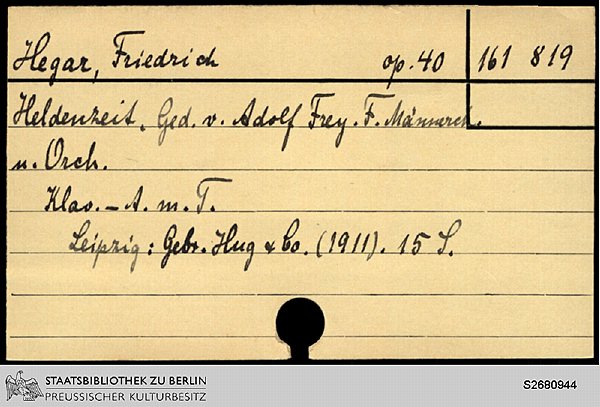 Hegar, Friedrich op. 40 161 819
Heldenzeit, Ged. v. Adolf Frey. F. Männerch.
u. Orch.
Klav.-A. m. T.
Leipzig: Gebr. Hug & Co. (1911). 15 S.
STAATSBIBLIOTHEK ZU BERLIN
PREUSSISCHER KULTURBESITZ
S2680944